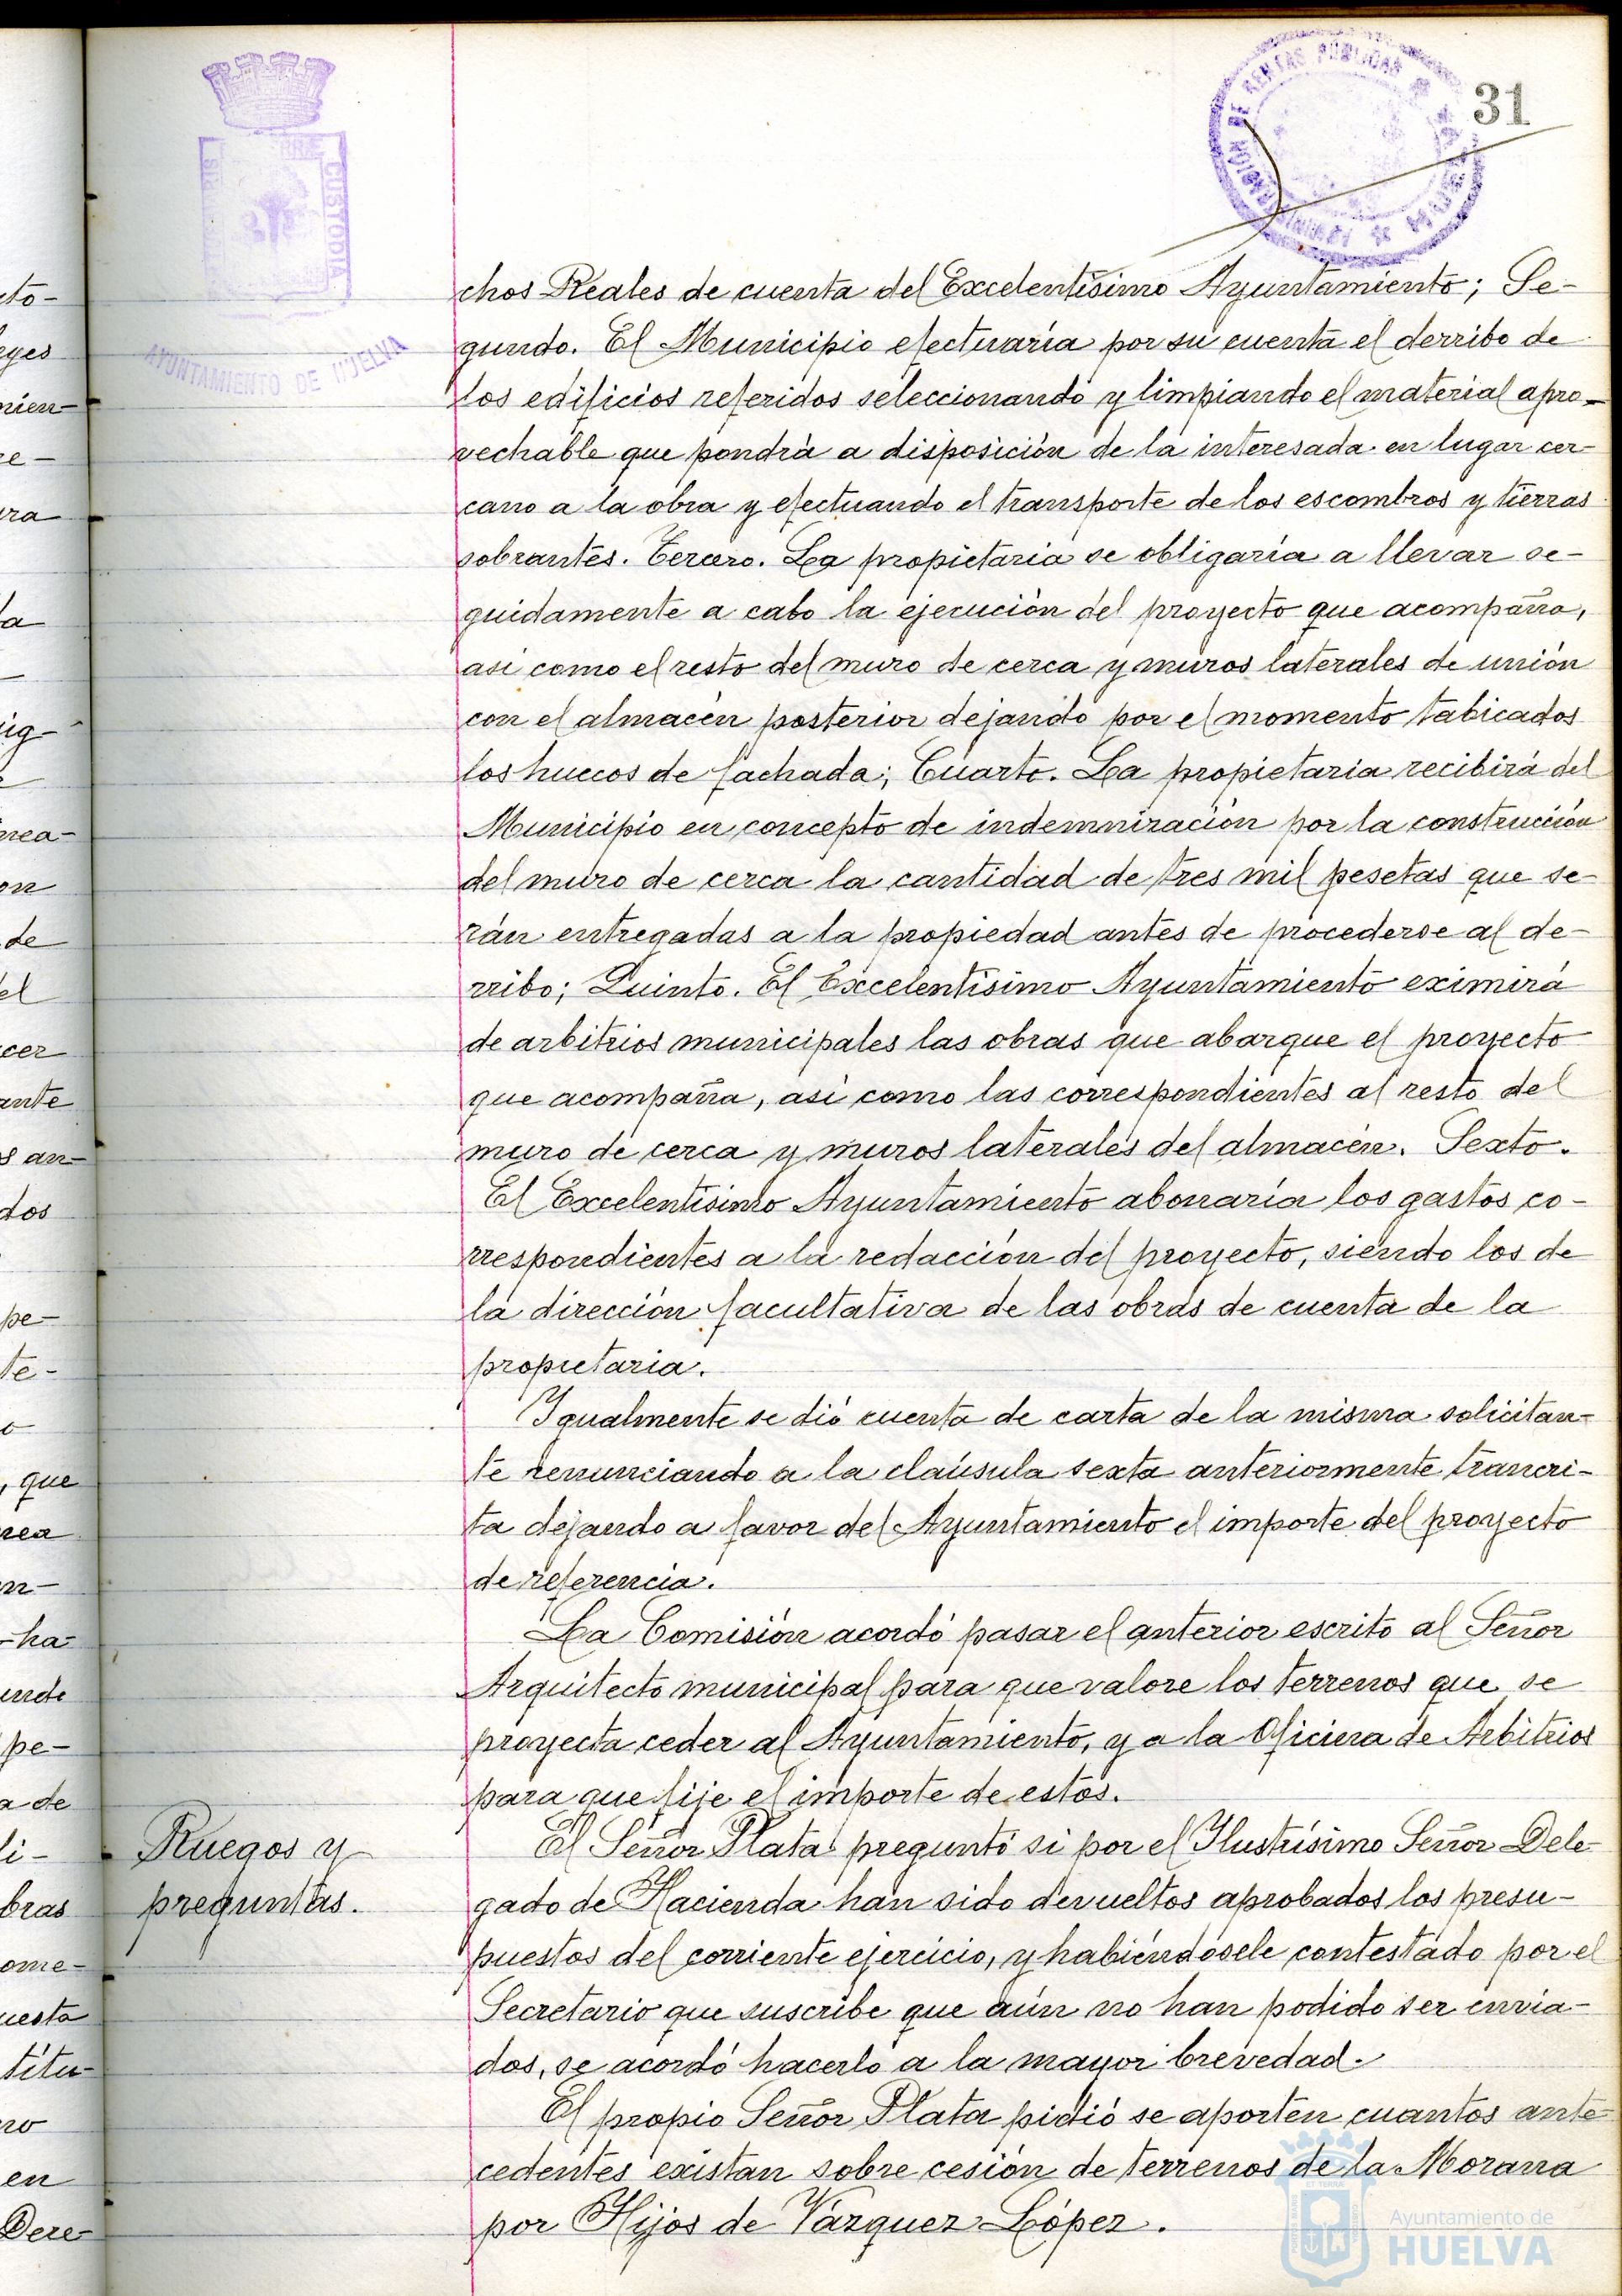 31
CUSTODIA
AYUNTAMIENTO DE HUELVA
ADMINISTRACIÓN DE RENTAS PUBLICAS
chos Reales de cuenta del Excelentísimo Ayuntamiento; Se-
gundo. El Municipio efectuaría por su cuenta el derribo de
los edificios referidos seleccionando y limpiando el material apro-
vechable que pondrá a disposición de la interesada en lugar cer-
cano a la obra y efectuando el transporte de los escombros y tierras
sobrantes. Tercero. La propietaria se obligaría a llevar se-
guidamente a cabo la ejecución del proyecto que acompaña,
asi como el resto del muro de cerca y muros laterales de unión
con el almacén posterior dejando por el momento tabicados
los huecos de fachada; Cuarto. La propietaria recibirá del
Municipio en concepto de indemnización por la construcción
del muro de cerca la cantidad de tres mil pesetas que se-
rán entregadas a la propiedad antes de procederse al de-
rribo; Quinto. El Excelentísimo Ayuntamiento eximirá
de arbitrios municipales las obras que abarque el proyecto
que acompaña, asi como las correspondientes al resto del
muro de cerca y muros laterales del almacén. Sexto.
El Excelentísimo Ayuntamiento abonaría los gastos co-
rrespondientes a la redacción del proyecto, siendo los de
la dirección facultativa de las obras de cuenta de la
propietaria.
Igualmente se dió cuenta de carta de la misma solicitan-
te renunciando a la claúsula sexta anteriormente trancri-
ta dejando a favor del Ayuntamiento el importe del proyecto
de referencia.
La Comisión acordó pasar el anterior escrito al Señor
Arquitecto municipal para que valore los terrenos que se
proyecta ceder al Ayuntamiento, y a la Oficina de Arbitrios
para que fije el importe de estos.
Ruegos y
preguntas.
El Señor Plata preguntó si por el Ilustrísimo Señor Dele-
gado de Hacienda han sido devueltos aprobados los presu-
puestos del corriente ejercicio, y habiéndosele contestado por el
Secretario que suscribe que aún no han podido ser envia-
dos, se acordó hacerlo a la mayor brevedad.
El propio Señor Plata pidió se aporten cuantos ante-
cedentes existan sobre cesión de terrenos de la Morana
por Hijos de Vázquez López.
Ayuntamiento de
HUELVA